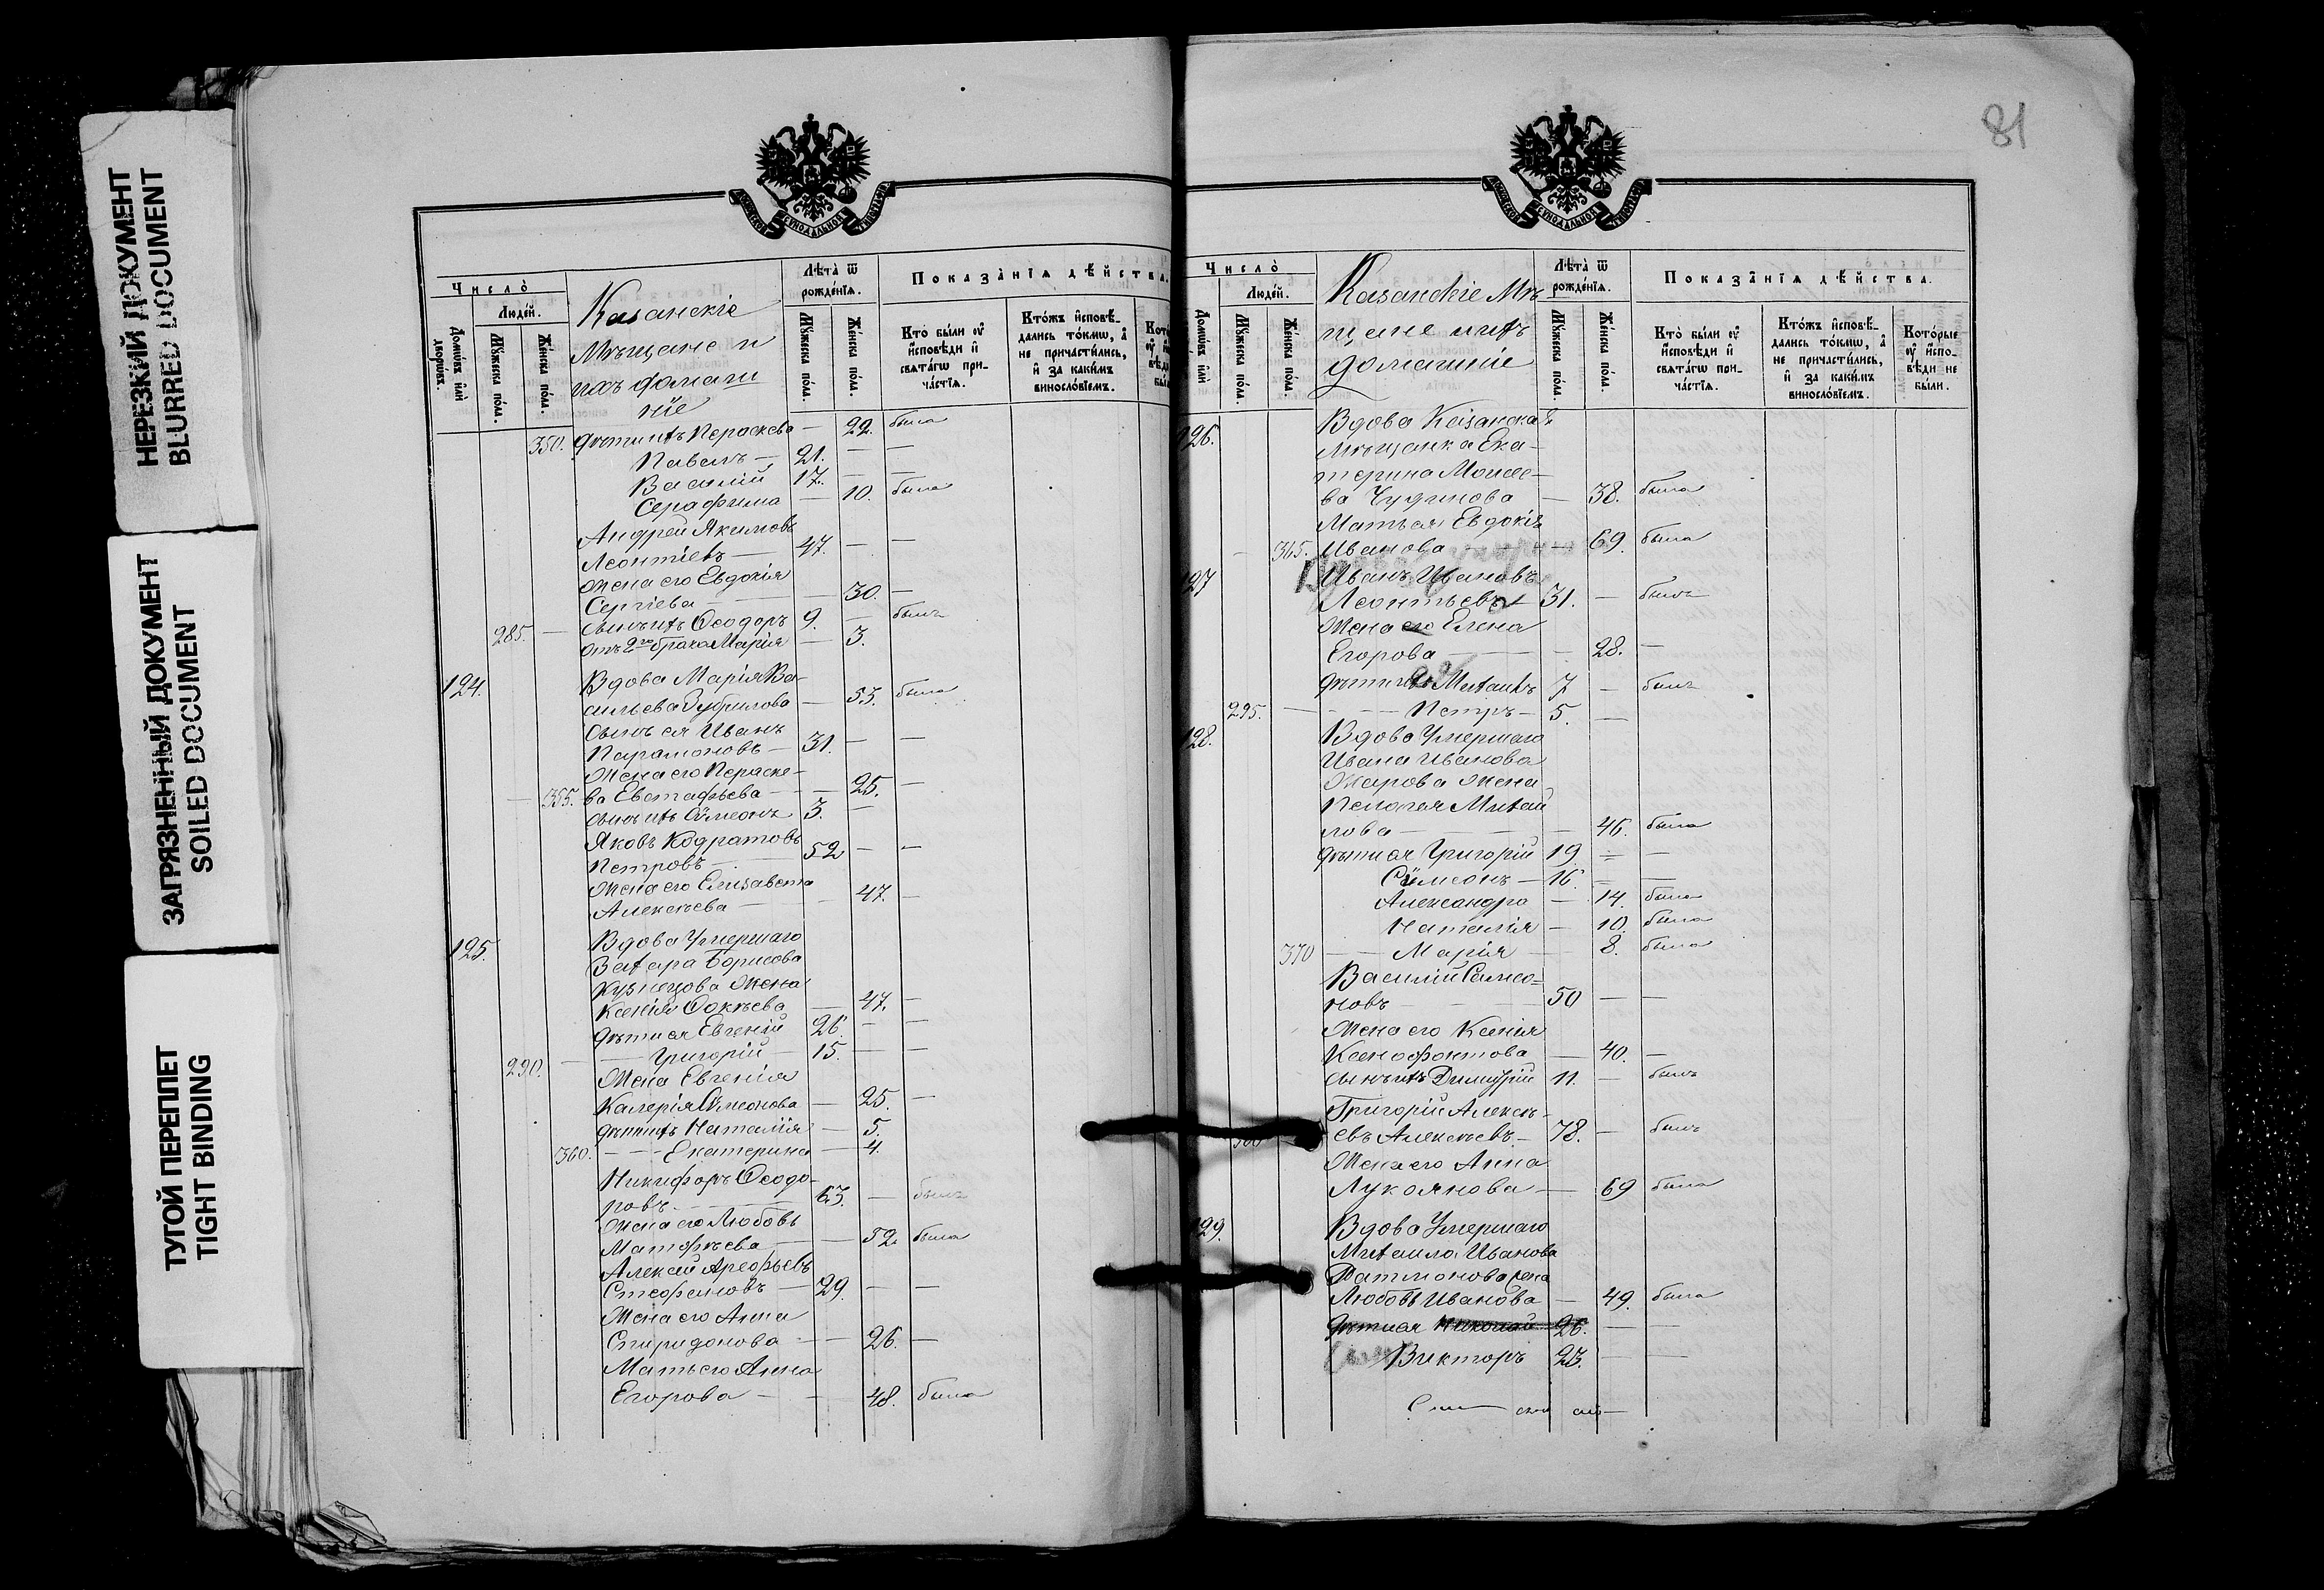 НЕРЕЗКИЙ ДОКУМЕНТ
BLURRED DOCUMENT
ЗАГРЯЗНЕННЫЙ ДОКУМЕНТ
SOILED DOCUMENT
ТУГОЙ ПЕРЕПЛЕТ
TIGHT BINDING
Число̀
Люде́й.
Домѡ́въ и҆лѝ дворѡ́въ.
Мꙋ́жеска по́ла.
Же́нска по́ла.
Казанскіе
Мѣщане и
ихъ домаш
ніе
Лѣта̀ ѿ рожде́нїѧ.
Мꙋ́жеска по́ла.
Же́нска по́ла.
Показа̑нїѧ дѣ́йства.
Кто̀ бы́ли оу҆
и҆сповѣди и҆
свѧта́гѡ при-
ча́стїѧ.
Кто́жъ и҆сповѣ́-
дались то́кмѡ, а҆
не причасти́лись,
и҆ за каки́мъ
винослѡ́вїемъ.
350. дѣти ихъ Параскева — 22. была
Павелъ — 21. — —
Василій 17. — —
Серафима — 10. была
Андрей Якимовъ
Леонтіевъ — 47. — —
Жена его Евдокія
Сергіева — 30. —
285. — сынъ ихъ Ѳеодоръ 9. — былъ
отъ 2го брака Марія — 3.
124. Вдова Марія Ва-
сильева Зубрилова — 53. была
сынъ ея Иванъ
Парамоновъ — 31. — —
Жена его Параске-
355. ва Евстафьева — 25. —
сынъ ихъ Сѵмеонъ 3. —
Яковъ Кодратовъ
Петровъ — 52 — —
Жена его Елизавета
Алексѣева — 47. —
125. Вдова Умершаго
Захара Борисова
Кузнецова Жена
Ксенія Ѳокѣева — 47. —
дѣти ея Евгеній 26. — —
290. — Григорій — 15. — —
Жена Евгенія
Калерія Сѵмеонова — 25. —
дѣти ихъ Наталія — 5.
360. — Екатерина — 4.
Никифоръ Ѳеодо-
ровъ — 63. — былъ
Жена его Любовь
Матфѣева — 52. была
Алексѣй Арефьевъ
Стефановъ — 29. — —
Жена его Анна
Спиридонова — 26. —
Мать его Анна
Егорова — 48. была
81
Число̀
Люде́й.
Домѡ́въ и҆лѝ
Мꙋ́жеска по́ла.
Же́нска по́ла.
Казанскіе Мѣ
щане и ихъ
домашніе
Лѣта̀ ѿ рожде́нїѧ.
Мꙋ́жеска по́ла.
Же́нска по́ла.
Показа̑нїѧ дѣ́йства.
Кто̀ бы́ли оу҆
и҆сповѣди и҆
свѧта́гѡ при-
ча́стїѧ.
Кто́жъ и҆сповѣ́-
дались то́кмѡ, а҆
не причасти́лись,
и҆ за каки́мъ
винослѡ́вїемъ.
Кото́рые
оу҆ и҆спо-
вѣди не
бы́ли.
126. Вдова Казанская
Мѣщанка Ека-
терина Моисе-
ва Чудинова — 38. была
Мать ея Евдокія
365. Иванова — 69. была
127 Иванъ Ивановъ
Леонтьевъ 31. — былъ
Жена его Елена
Егорова — 28. —
дѣти ихъ Михаилъ 7 — былъ
295. — Петръ — 5. —
128. Вдова Умершаго
Ивана Иванова
Жарова Жена
Пелагея Михай
лова — 46. была
дѣти ея Григорій 19 — —
Сѵмеонъ — 16. — —
Александра — 14. была
Наталія — 10. была
370 — Марія — 8. была
Василій Самсо-
новъ 50 — —
Жена его Ксенія
Ксенофонтова — 40. —
сынъ ихъ Димитрій 11. — былъ
Григорій Алексѣ-
евъ Алексѣевъ — 78. — былъ
Жена его Анна
Лукоянова — 69 была
129. Вдова Умершаго
Михаила Иванова
жена
Любовь Иванова — 49. была
дѣти ея Николай 26. — —
Викторъ 23. — —